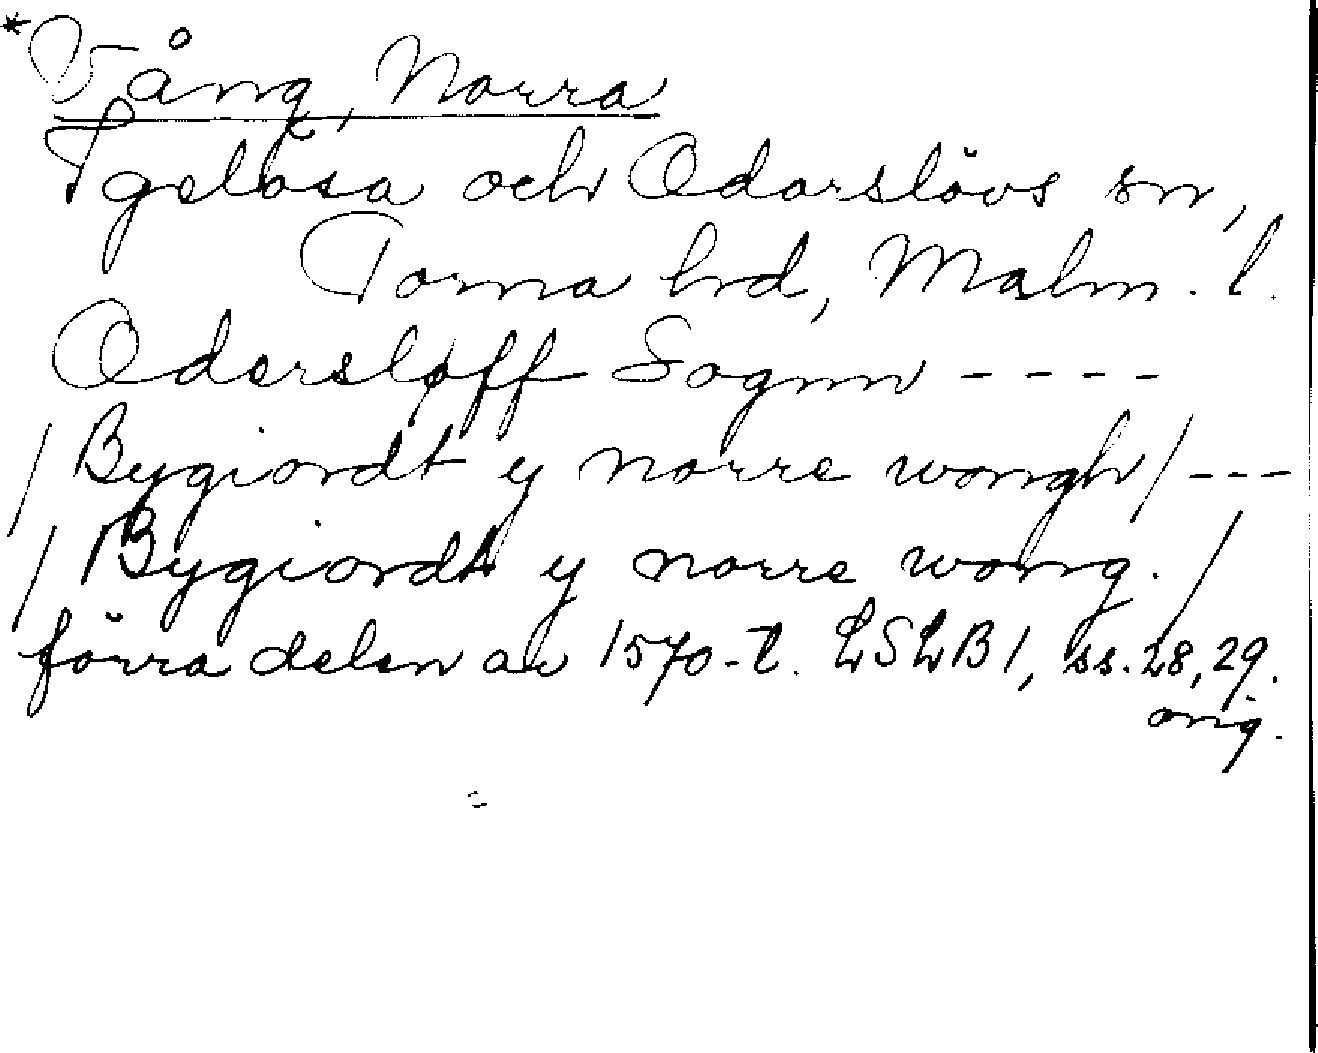 *Vång, Norra
Igelösa och Odarslövs sn,
Torna hd, Malm. l.
Odersløff Sognn - - - -
/ Bygiordt y norre wongh / - - -
/ Bygiordt y norre wong. /
förra delen av 1570-t. LSLB 1, ss. 28, 29.
orig.